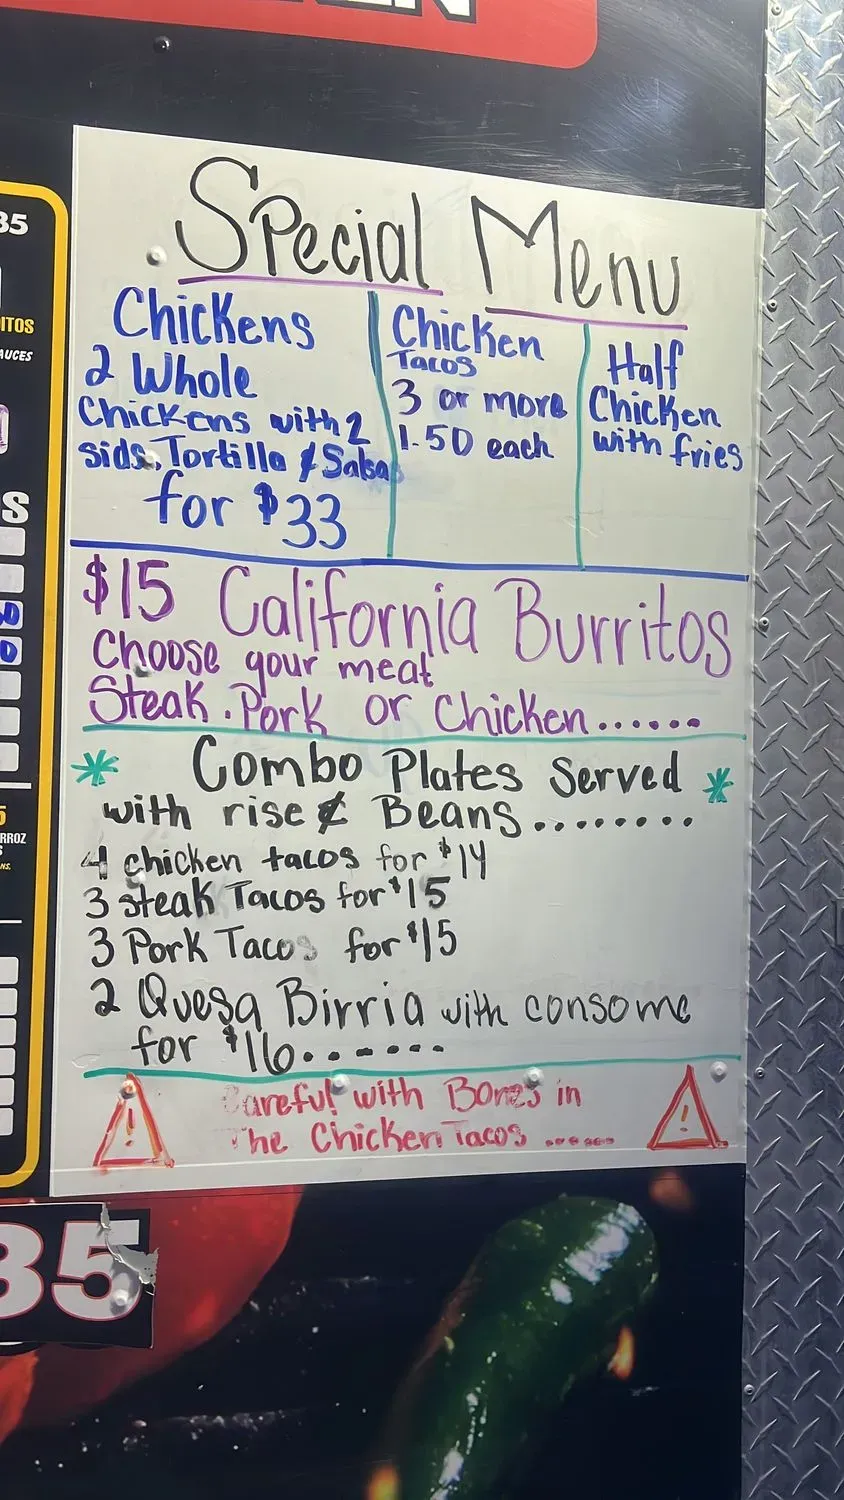 Special Menu
Chickens
2 Whole
Chickens with 2
sids, Tortilla & Salsa
for $33
Chicken
Tacos
3 or more
1.50 each
Half
Chicken
with fries
$15 California Burritos
Choose your meat
Steak. Pork or Chicken......
* Combo Plates Served *
with rise & Beans........
4 chicken tacos for $14
3 steak Tacos for $15
3 Pork Tacos for $15
2 Quesa Birria with consome
for $16.......
! Careful with Bones in !
The Chicken Tacos ......
35
ITOS
AUCES
S
0
5
RROZ
35